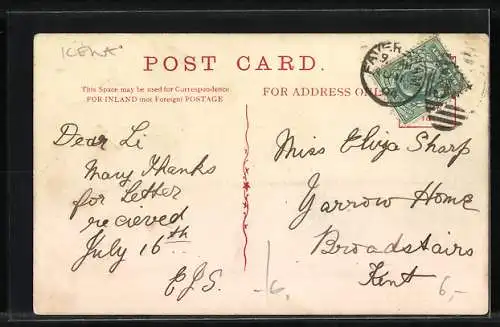 POST CARD.
This Space may be used for Correspondence
FOR INLAND (not Foreign) POSTAGE
FOR ADDRESS ONLY
FAVERSHAM
Dear Li
Many thanks
for Letter
recieved
July 16th
E.J.S.
Miss Eliza Sharp
Yarrow Home
Broadstairs
Kent
6,
6,-